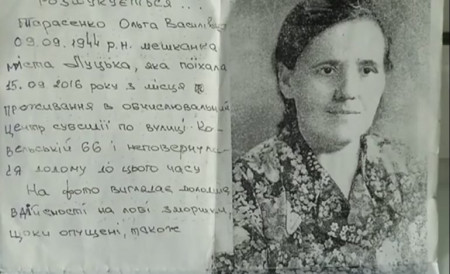 Розшукується...
Тарасенко Ольга Василівна
09.09.1944 р.н. мешканка
міста Луцька, яка поїхала
15.09 2016 року з місця
проживання в обчислювальний
центр субсидії по вулиці Ко-
вельській 66 і неповернула-
ся додому до цього часу
На фото виглядає молодша,
в дійсності на лобі зморшки,
щоки опущені, також